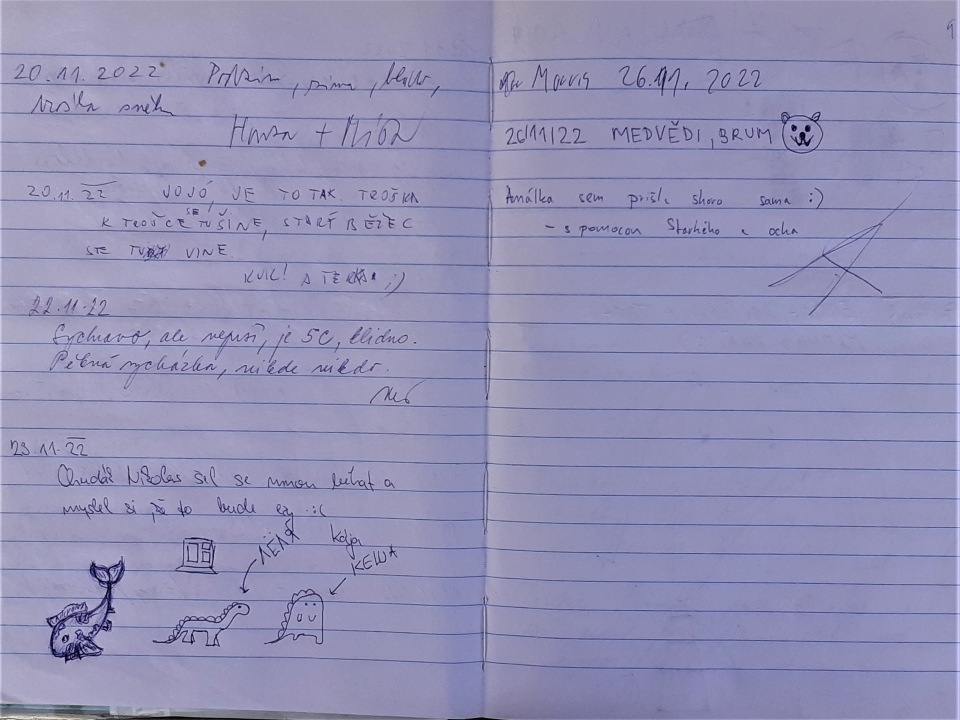 20.11.2022 Podzim, zima, bláto,
trocha sněhu
Honza +
20.11.22 JOJÓ, JE TO TAK. TROŠKA
K TROŠCE SE TUŠINE, STARÝ BĚŽEC
STE VINE.
KUK! A ;)
22.11.22
Sychravo, ale neprší, je 5C, klidno.
Pěkná vycházka, nikde nikdo.
23.11.22
Chudák Nikolas šel se mnou běhat a
myslel si že to bude ez :(
ЛЁЛЯ kolja
КЕША
26.11.2022
26/11/22 MEDVĚDI, BRUM
Amálka sem prišla skoro sama :)
- s pomocou Starkého a ocka